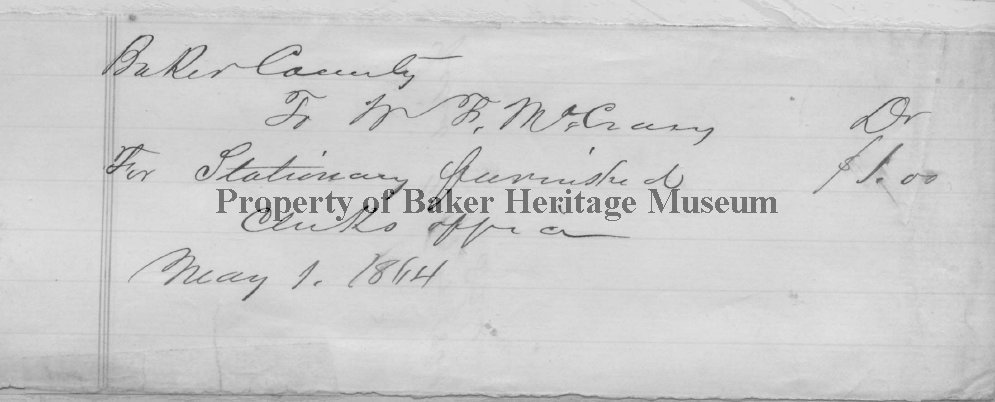 Baker County
To W F. McCrary Dr
For Stationary furnished $1.00
Property of Baker Heritage Museum
Clerks office
May 1. 1864